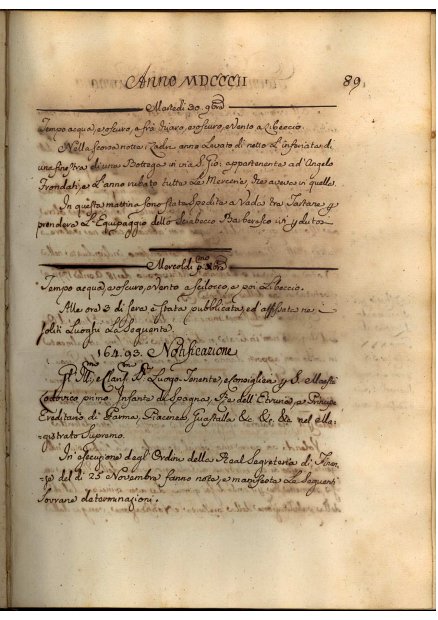 Anno MDCCCII 89
Martedì 30. 9bre
Tempo acqua, e oscuro, e fra Chiaro, e oscuro, e Vento a Libeccio.
Nella scorsa notte i Ladri anno Levato di netto L'inferiata di
una finestra di una Bottega in via S. Gio: appartenente ad'Angelo
Frondati, e L'anno rubato tutta La Merceria, che aveva in quella.
In questa mattina sono state spedite a Vada tre Tartane p
prendere L'Equipaggio dello Sciabecco Barbaresco ivi
Mercoldì p.mo Xbre
Tempo acqua, e oscuro, e Vento a scilocco, e poi Libeccio.
Alle ore 2 di sera è stata pubblicata, ed'affissa ne
soliti Luoghi La seguente.
164.93. Notificazione
Gl' Ill.mi, e Clar.mi SS.ri Luogo-Tenente, e Consiglieri p S. Maestà
Lodovico primo Infante di Spagna, Re dell'Etruria, e Principe
Ereditario di Parma, Piacenza, Guastalla &c. &c. &c. nel Ma-
-gistrato Supremo.
In esecuzione degl'Ordini della Real Segreteria di
del dì 23 Novembre fanno note, e manifeste Le seguenti
Sovrane determinazioni.